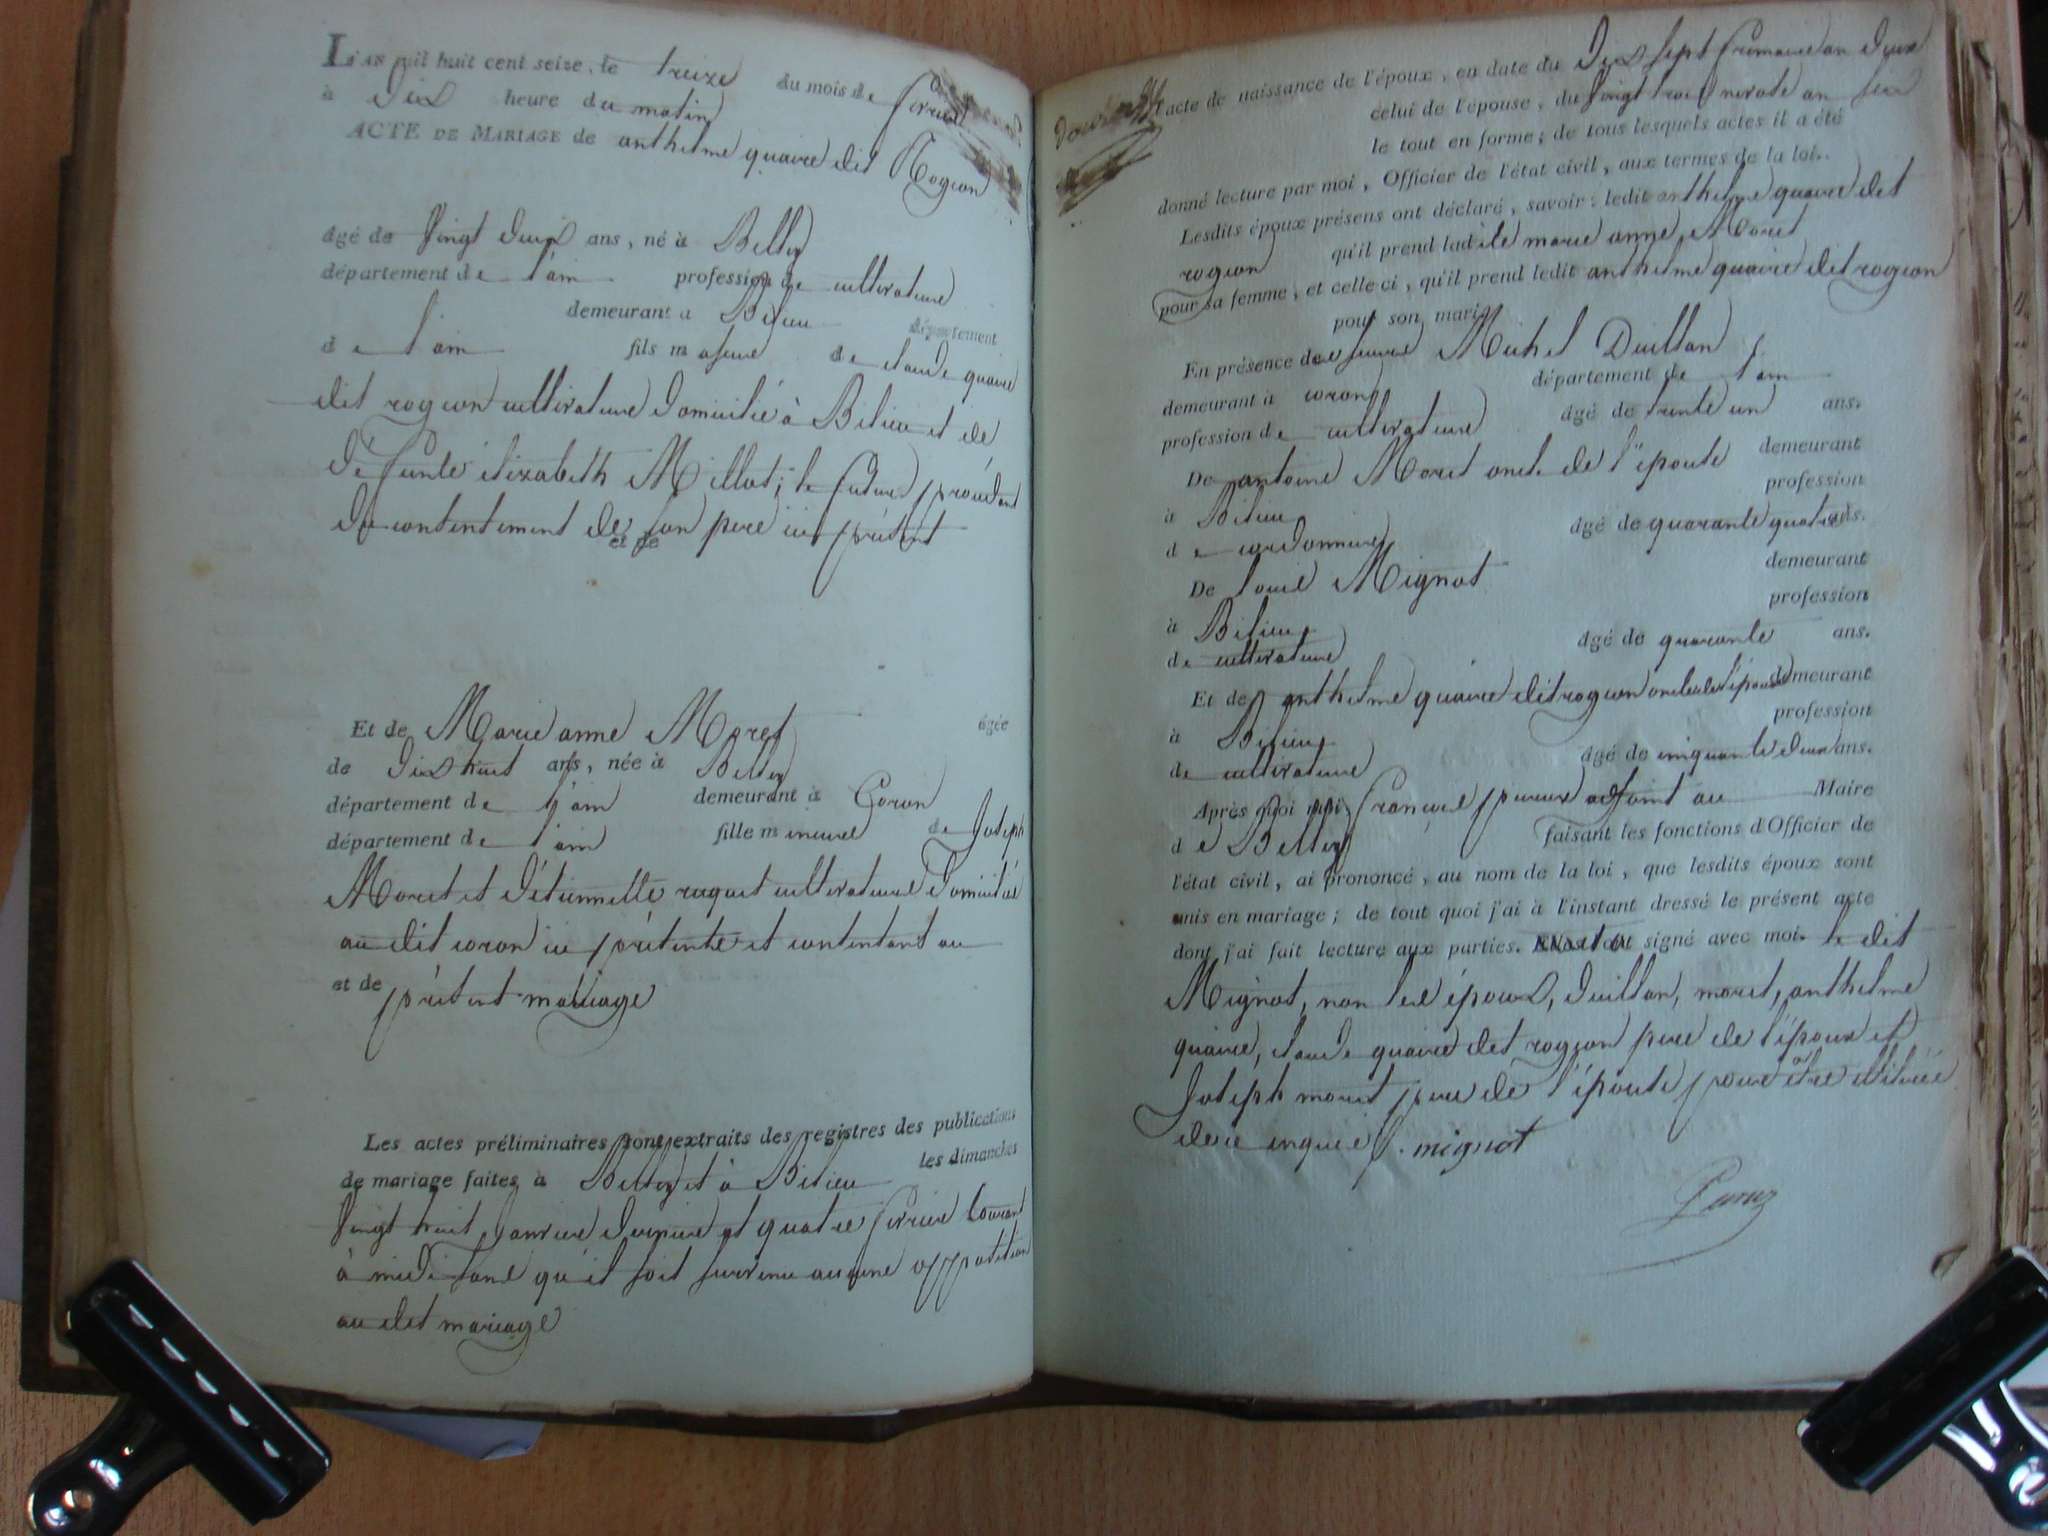 L'AN mil huit cent seize, le treize du mois de fevrier
à dix heure du matin
ACTE DE MARIAGE de anthelme quaire dit Rogion
âgé de vingt deux ans, né à Belley
département de l'ain profession de cultivateur
demeurant à Billieu département
de l'ain fils majeur de claude quaire
dit rogion cultivateur domicilié à Billieu et de
défunte elizabeth Millot; le futur procédant
du consentement de son pere ici présent
et de
Et de Marie anne Moret âgée
de dix huit ans, née à Belley
département de l'ain demeurant à Coron
département de l'ain fille mineure de Joseph
Moret et d'étiennette ruquet cultivateurs domiciliés
au dit coron ici présents et consentant au
et de présent mariage
Les actes préliminaires sont extraits des registres des publications
de mariage faites à Belley et à Billieu les dimanches
vingt huit Janvier dernier et quatre fevrier courant
à midi sans qu'il soit survenu aucune opposition
au dit mariage
l'acte de naissance de l'époux, en date du dix sept frimaire an deux
celui de l'épouse, du vingt trois nivose an six
le tout en forme; de tous lesquels actes il a été
donné lecture par moi, Officier de l'état civil, aux termes de la loi.
Lesdits époux présens ont déclaré, savoir: ledit anthelme quaire dit
rogion qu'il prend ladite marie anne Moret
pour sa femme, et celle ci, qu'il prend ledit anthelme quaire dit rogion
pour son mari
En présence de Michel Duillon
demeurant à coron département de l'ain
profession de cultivateur âgé de trente un ans.
De antoine Moret oncle de l'épouse demeurant
à Billieu profession
de cordonnier âgé de quarante quatre ans.
De louis Mignot demeurant
à Billieu profession
de cultivateur âgé de quarante ans.
Et de anthelme quaire dit rogion oncle de l'époux demeurant
à Billieu profession
de cultivateur âgé de cinquante deux ans.
Après quoi moi, françois peruz adjoint au Maire
de Belley faisant les fonctions d'Officier de
l'état civil, ai prononcé, au nom de la loi, que lesdits époux sont
unis en mariage; de tout quoi j'ai à l'instant dressé le présent acte
dont j'ai fait lecture aux parties. signé avec moi. le dit
Mignot, non les époux, Duillon, moret, anthelme
quaire, claude quaire dit rogion pere de l'époux et
Joseph moret pere de l'épouse pour être illitérés
de ce enquis. mignot
Peruz